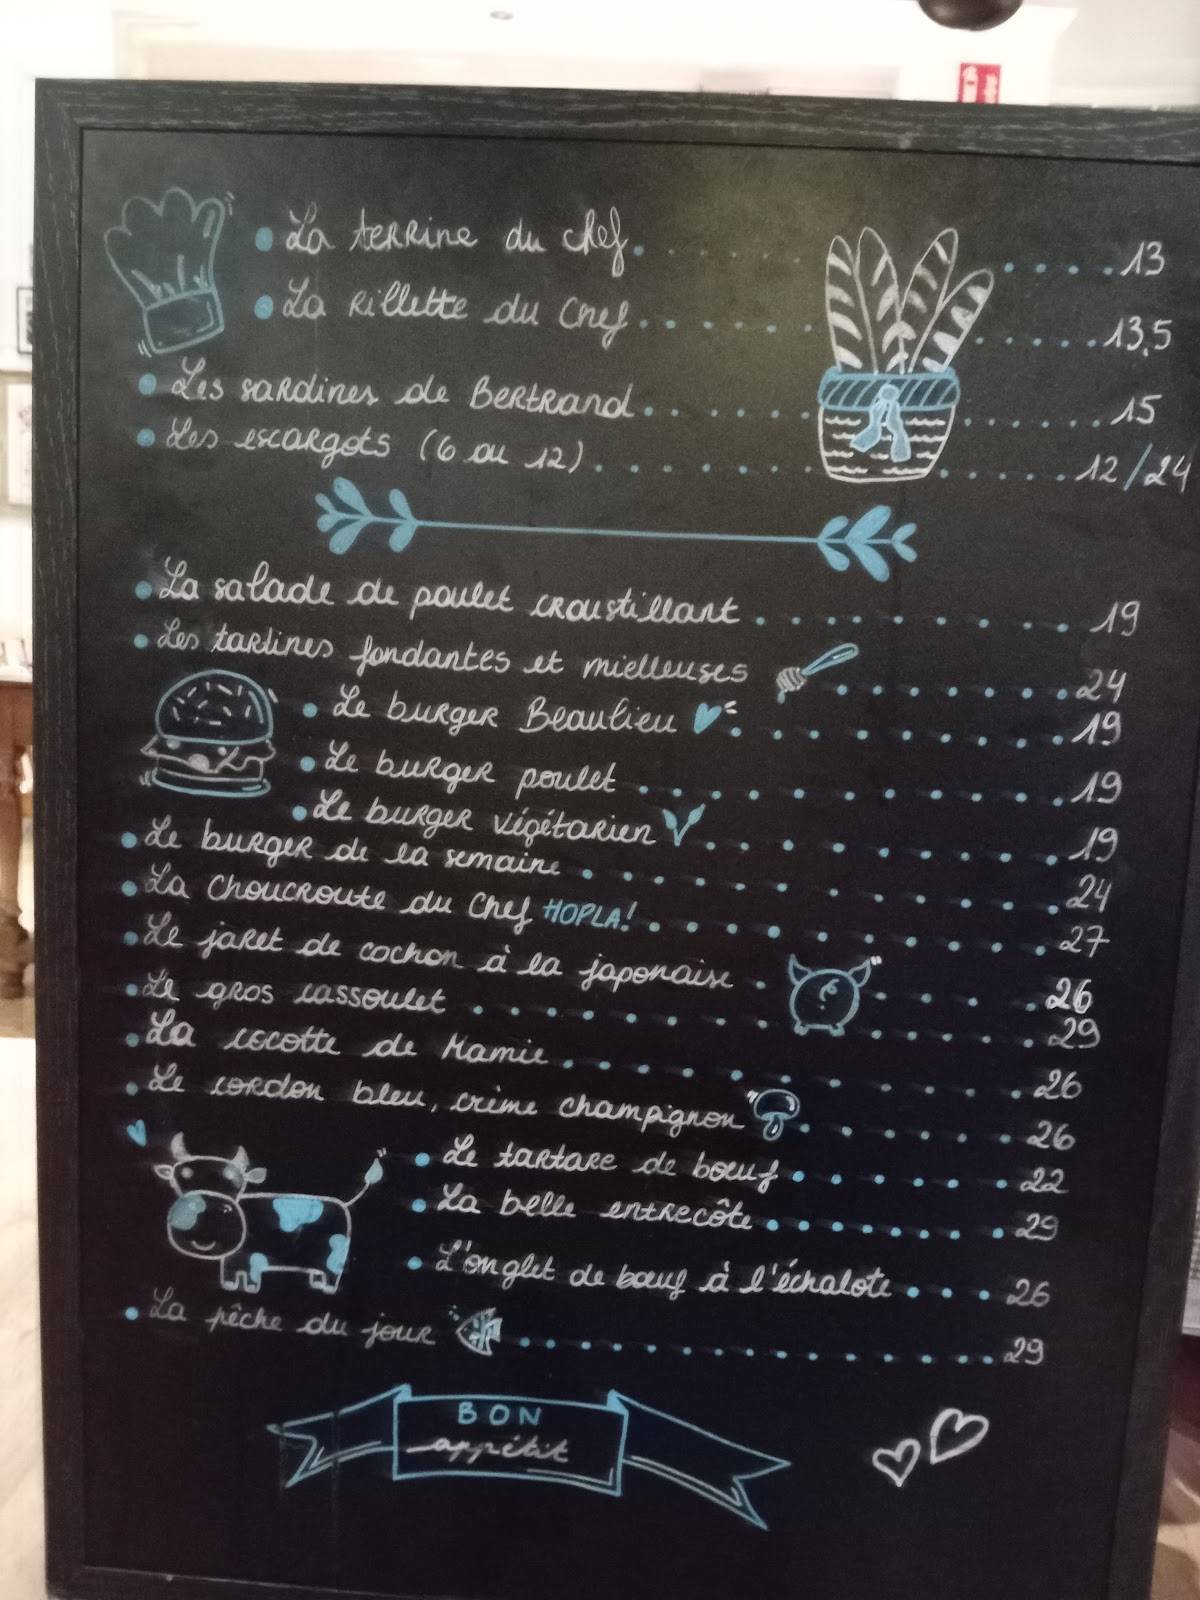 La terrine du chef. 13
La Rillette du Chef 13,5
Les sardines de Bertrand 15
Les escargots (6 ou 12) 12/24
La salade de poulet croustillant 19
Les tartines fondantes et mielleuses 24
Le burger Beaulieu 19
Le burger poulet 19
Le burger végétarien 19
Le burger de la semaine 24
La Choucroute du Chef HOPLA! 27
Le jaret de cochon à la japonaise 26
Le gros cassoulet 29
La cocotte de Mamie 26
Le cordon bleu, crème champignon 26
Le tartare de bœuf 22
La belle entrecôte 29
L'onglet de bœuf à l'échalote 26
La pêche du jour 29
BON
appétit